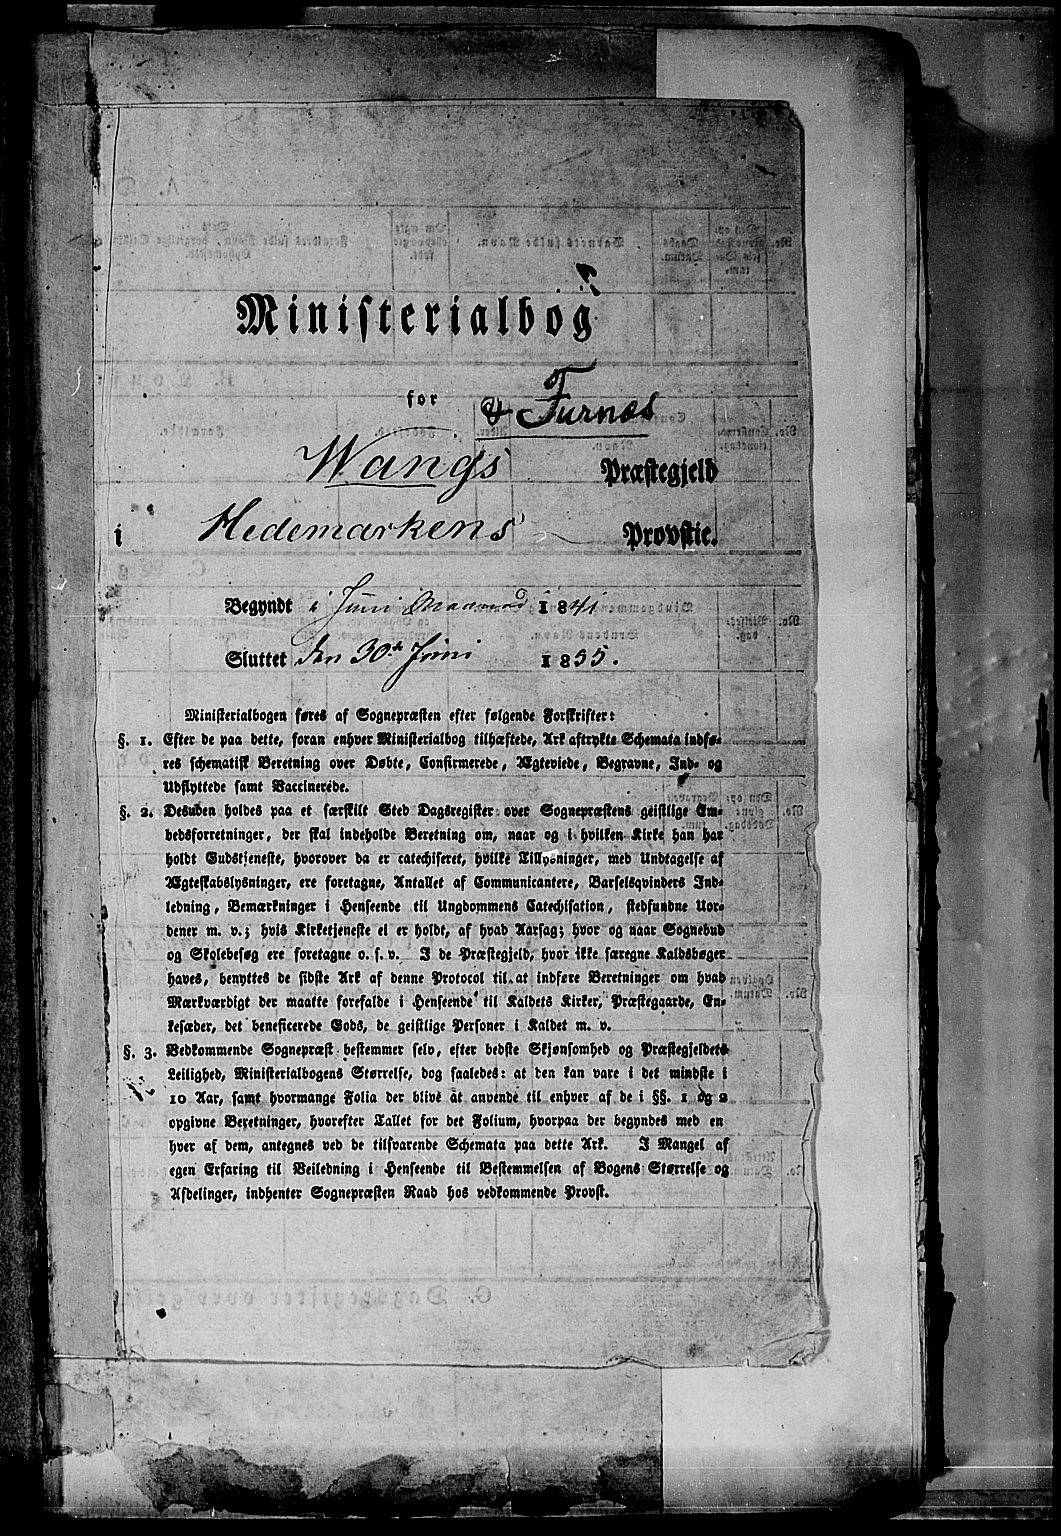 Ministerialbog
for & Furnæs
Wangs Præstegjeld
i Hedemarkens Provstie.
Begyndt i Juni Maaned 1841
Sluttet den 30te Juni 1855.
Ministerialbogen føres af Sognepræsten efter følgende Forskrifter:
§. 1. Efter de paa dette, foran enhver Ministerialbog tilhæftede, Ark aftrykte Schemata indfø-
res schematisk Beretning over Døbte, Confirmerede, Ægteviede, Begravne, Ind- og
Udflyttede samt Vaccinerede.
§. 2. Desuden holdes paa et særskilt Sted Dagsregister over Sognepræstens geistlige Em-
bedsforretninger, der skal indeholde Beretning om, naar og i hvilken Kirke han har
holdt Gudstjeneste, hvorover da er catechiseret, hvilke Tillysninger, med Undtagelse af
Ægteskabslysninger, ere foretagne, Antallet af Communicantere, Barselqvinders Ind-
ledning, Bemærkninger i Henseende til Ungdommens Catechisation, stedfundne Uor-
dener m. v.; hvis Kirketjeneste ei er holdt, af hvad Aarsag; hvor og naar Sognebud
og Skolebesøg ere foretagne o. s. v. I de Præstegjeld, hvor ikke særegne Kaldsbøger
haves, benyttes de sidste Ark af denne Protocol til at indføre Beretninger om hvad
Mærkværdigt der maatte forefalde i Henseende til Kaldets Kirker, Præstegaarde, En-
kesæder, det beneficerede Gods, de geistlige Personer i Kaldet m. v.
§. 3. Vedkommende Sognepræst bestemmer selv, efter bedste Skjønsomhed og Præstegjeldets
Leilighed, Ministerialbogens Størrelse, dog saaledes: at den kan vare i det mindste i
10 Aar, samt hvormange Folia der blive at anvende til enhver af de i §§. 1 og 2
opgivne Beretninger, hvorefter Tallet for det Folium, hvorpaa der begyndes med en
hver af dem, antegnes ved de tilsvarende Schemata paa dette Ark. I Mangel af
egen Erfaring til Veiledning i Henseende til Bestemmelsen af Bogens Størrelse og
Afdelinger, indhenter Sognepræsten Raad hos vedkommende Provst.